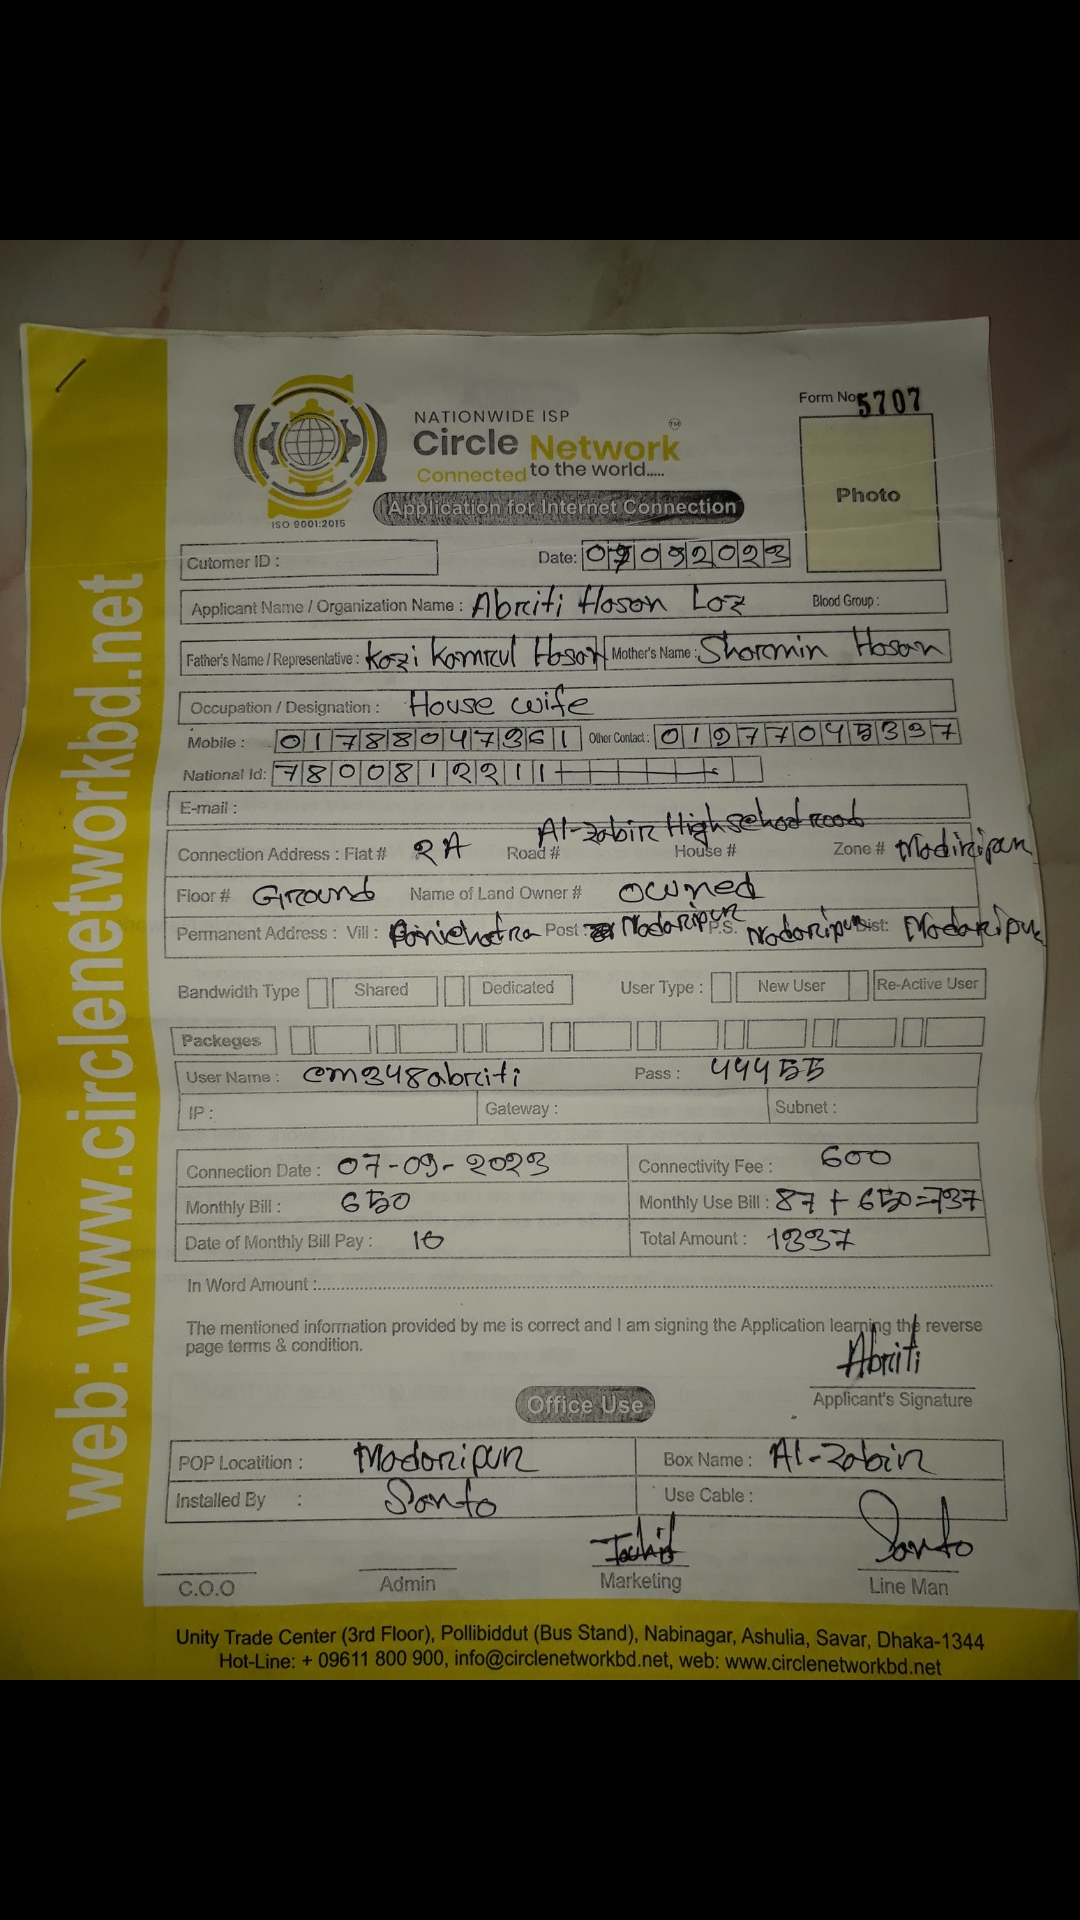 web: www.circlenetworkbd.net
Form No 5707
NATIONWIDE ISP
Circle Network TM
Connected to the world.....
ISO 9001:2015
Application for Internet Connection
Photo
Cutomer ID :
Date: 07092023
Applicant Name / Organization Name : Abriti Hasan Loz
Blood Group :
Father's Name / Representative : Kazi Kamrul Hasan Mother's Name : Sharmin Hasan
Occupation / Designation : House wife
Mobile : 01788047361 Other Contact : 019770
National Id: 7800812211
E-mail :
Al-zabir High School road
Connection Address : Flat # 2A Road # House # Zone # Madiripur
Floor # Ground Name of Land Owner # owned
Permanent Address : Vill : Post Madaripur P.S. Madaripur Dist: Madaripur
Bandwidth Type Shared Dedicated User Type : New User Re-Active User
Packeges
User Name : cm348abriti Pass : 44455
IP : Gateway : Subnet :
Connection Date : 07-09-2023 Connectivity Fee : 600
Monthly Bill : 650 Monthly Use Bill : 87 + 650=737
Date of Monthly Bill Pay : 10 Total Amount : 1337
In Word Amount :
The mentioned information provided by me is correct and I am signing the Application learning the reverse
page terms & condition.
Abriti
Applicant's Signature
Office Use
POP Locatition : Madaripur Box Name : Al-zabir
Installed By : Santo Use Cable :
Santo
C.O.O Admin Marketing Line Man
Unity Trade Center (3rd Floor), Pollibiddut (Bus Stand), Nabinagar, Ashulia, Savar, Dhaka-1344
Hot-Line: + 09611 800 900, info@circlenetworkbd.net, web: www.circlenetworkbd.net